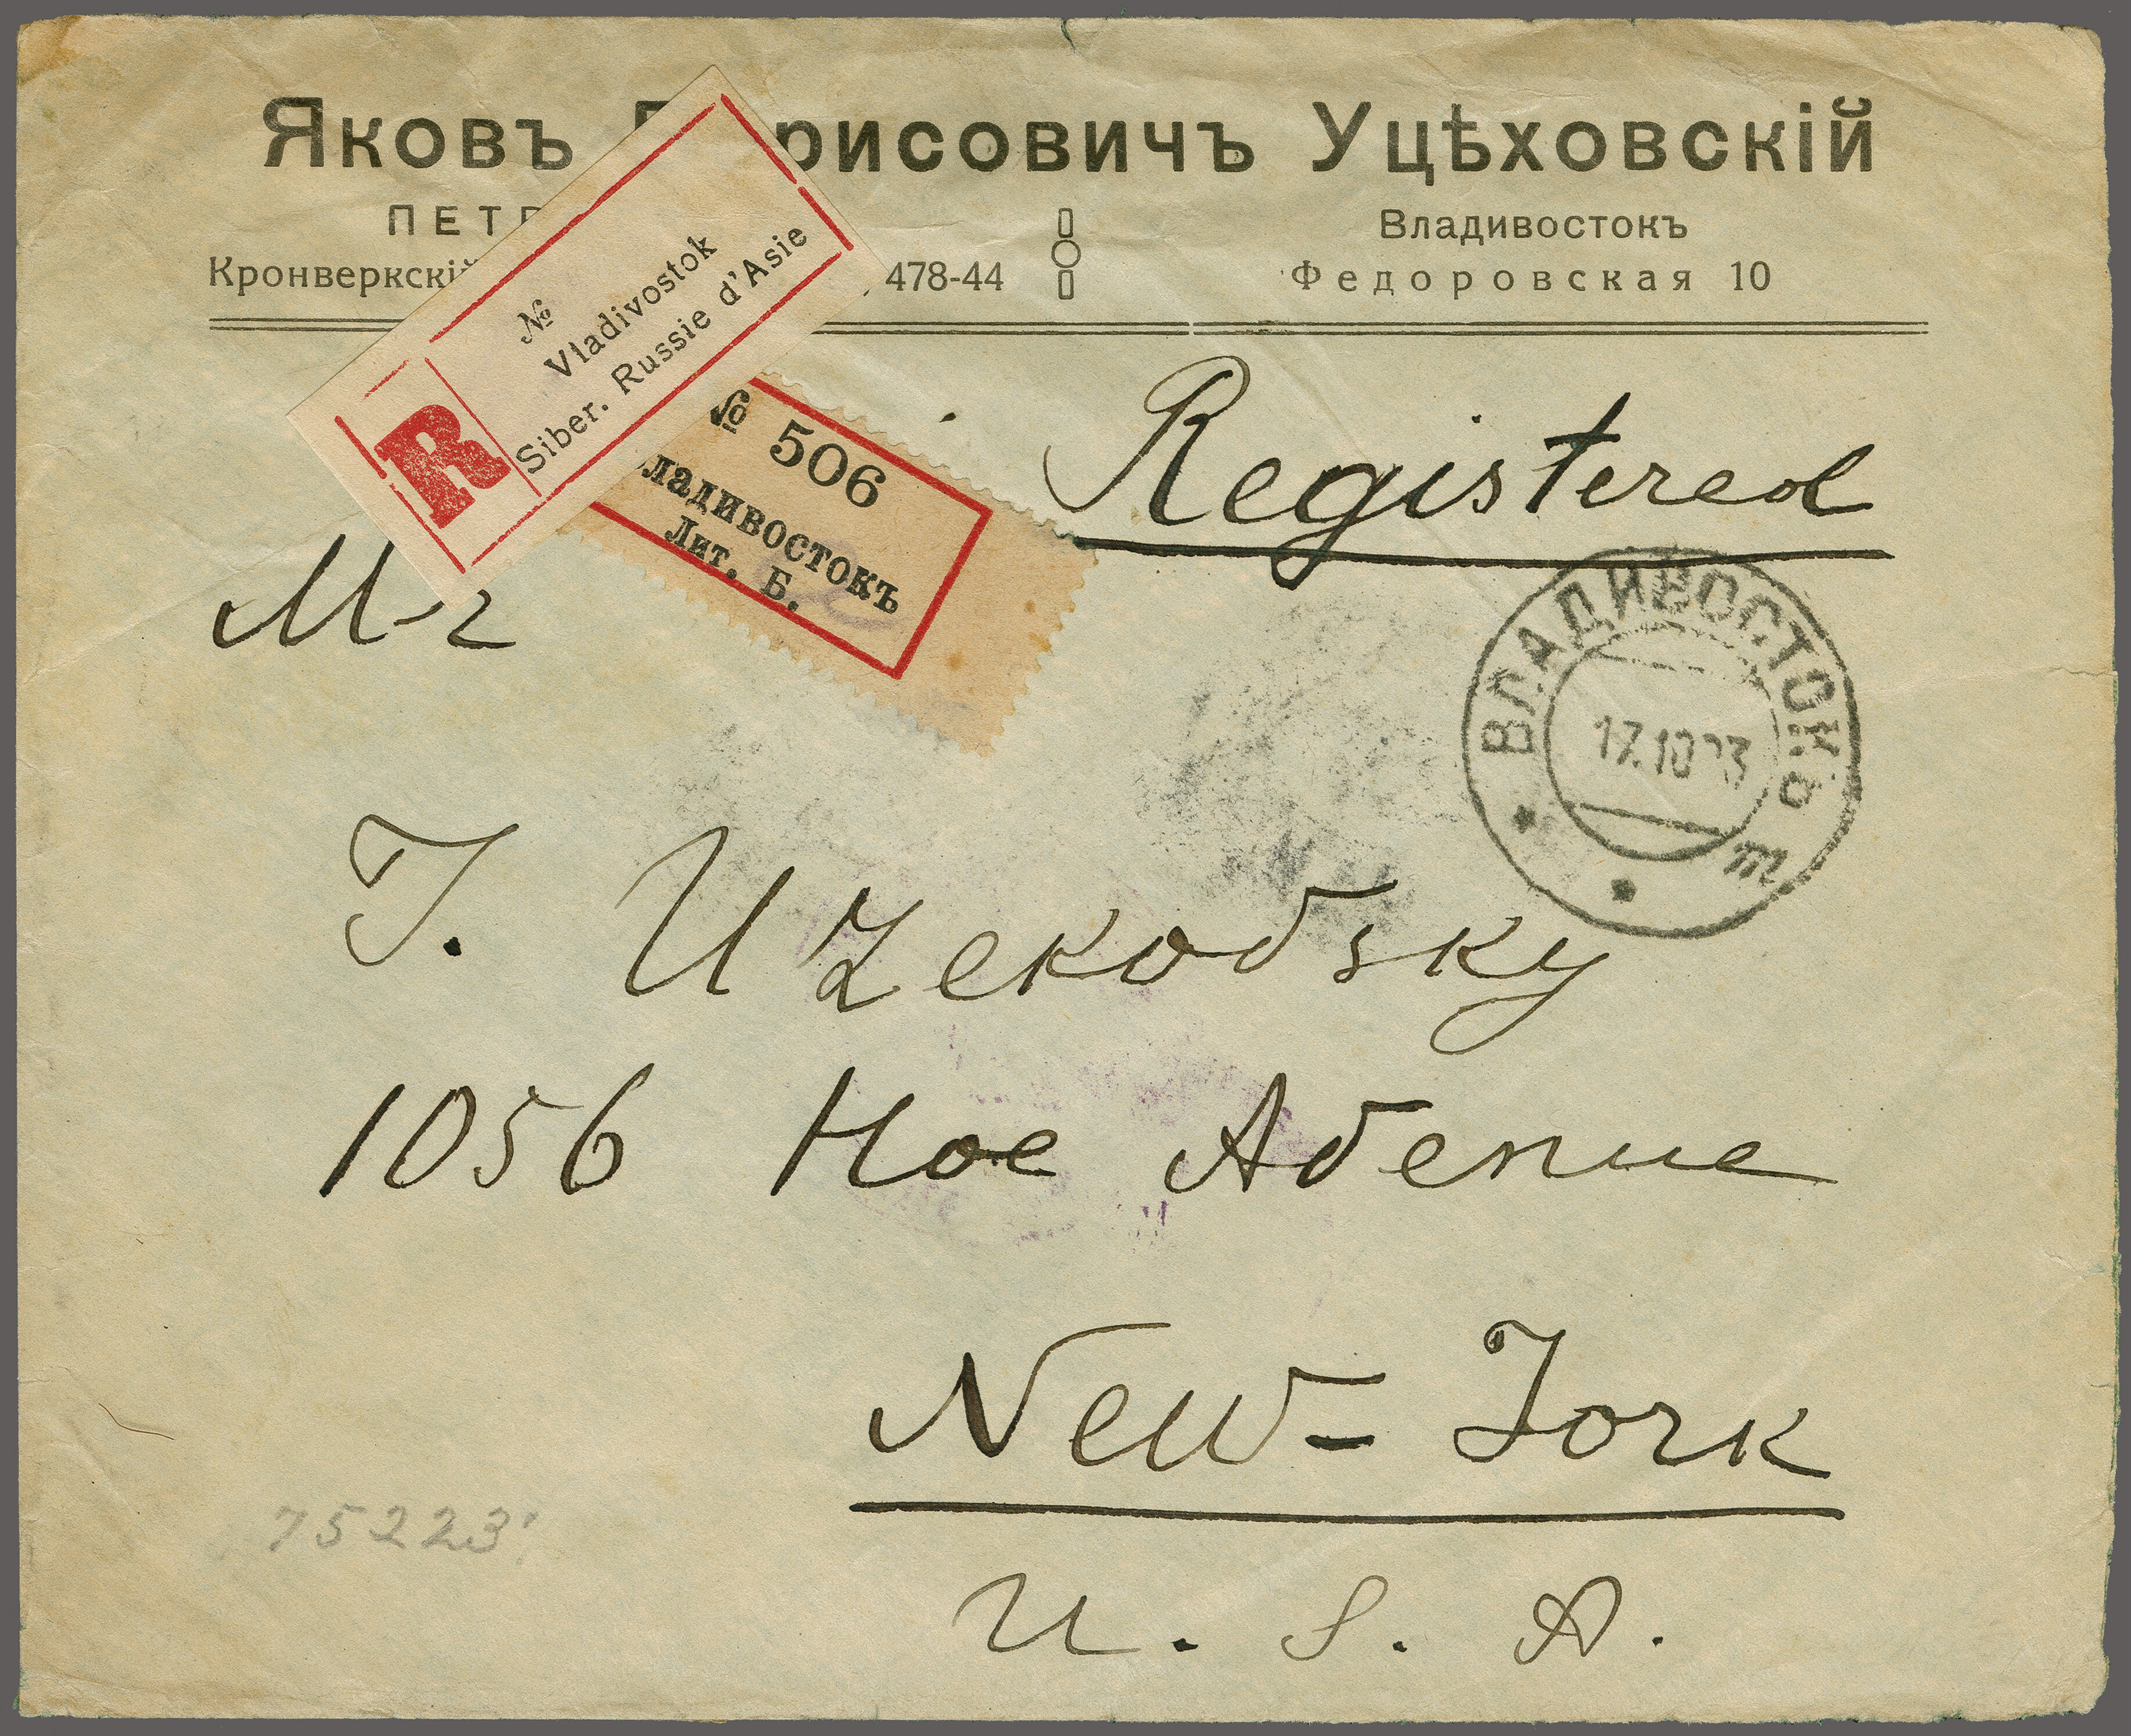 Яковъ рисовичъ Уцѣховскій
ПЕТР
Кронверкскій 478-44
Владивостокъ
Федоровская 10
R
№
Vladivostok
Siber. Russie d'Asie
№ 506
ладивостокъ
Лит. Б.
Registered
M-r
ВЛАДИВОСТОКЪ
17.10 23
т
J. Uzekovsky
1056 Hoe Avenue
New-York
U. S. A.
75223